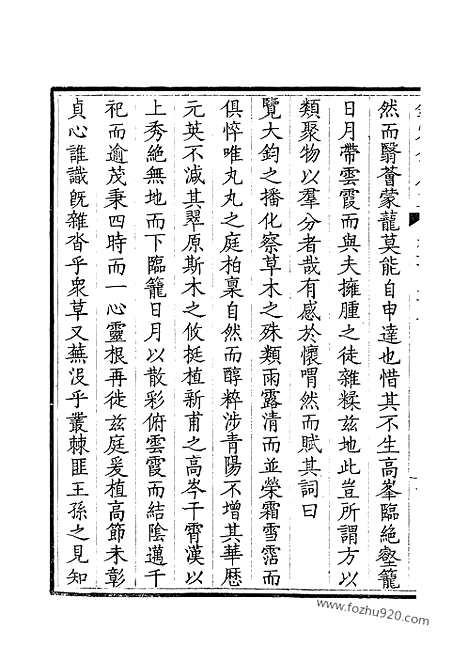 然而翳薈蒙蘢莫能自申達也惜其不生高峯臨絶壑籠
日月帶雲霞而與夫擁腫之徒雜糅兹地此豈所謂方以
類聚物以羣分者哉有感於懷喟然而賦其詞曰
覽大鈞之播化察草木之殊類雨露清而並榮霜雪霑而
俱悴唯丸丸之庭柏稟自然而醇粹涉青陽不增其華歴
元英不減其翠原斯木之攸挺植新甫之高岑干霄漢以
上秀絶無地而下臨籠日月以散彩俯雲霞而結陰邁千
祀而逾茂秉四時而一心靈根再徙兹庭爰植高節未彰
貞心誰識旣雜沓乎衆草又蕪没乎叢棘匪王孫之見知
www.fozhu920.com